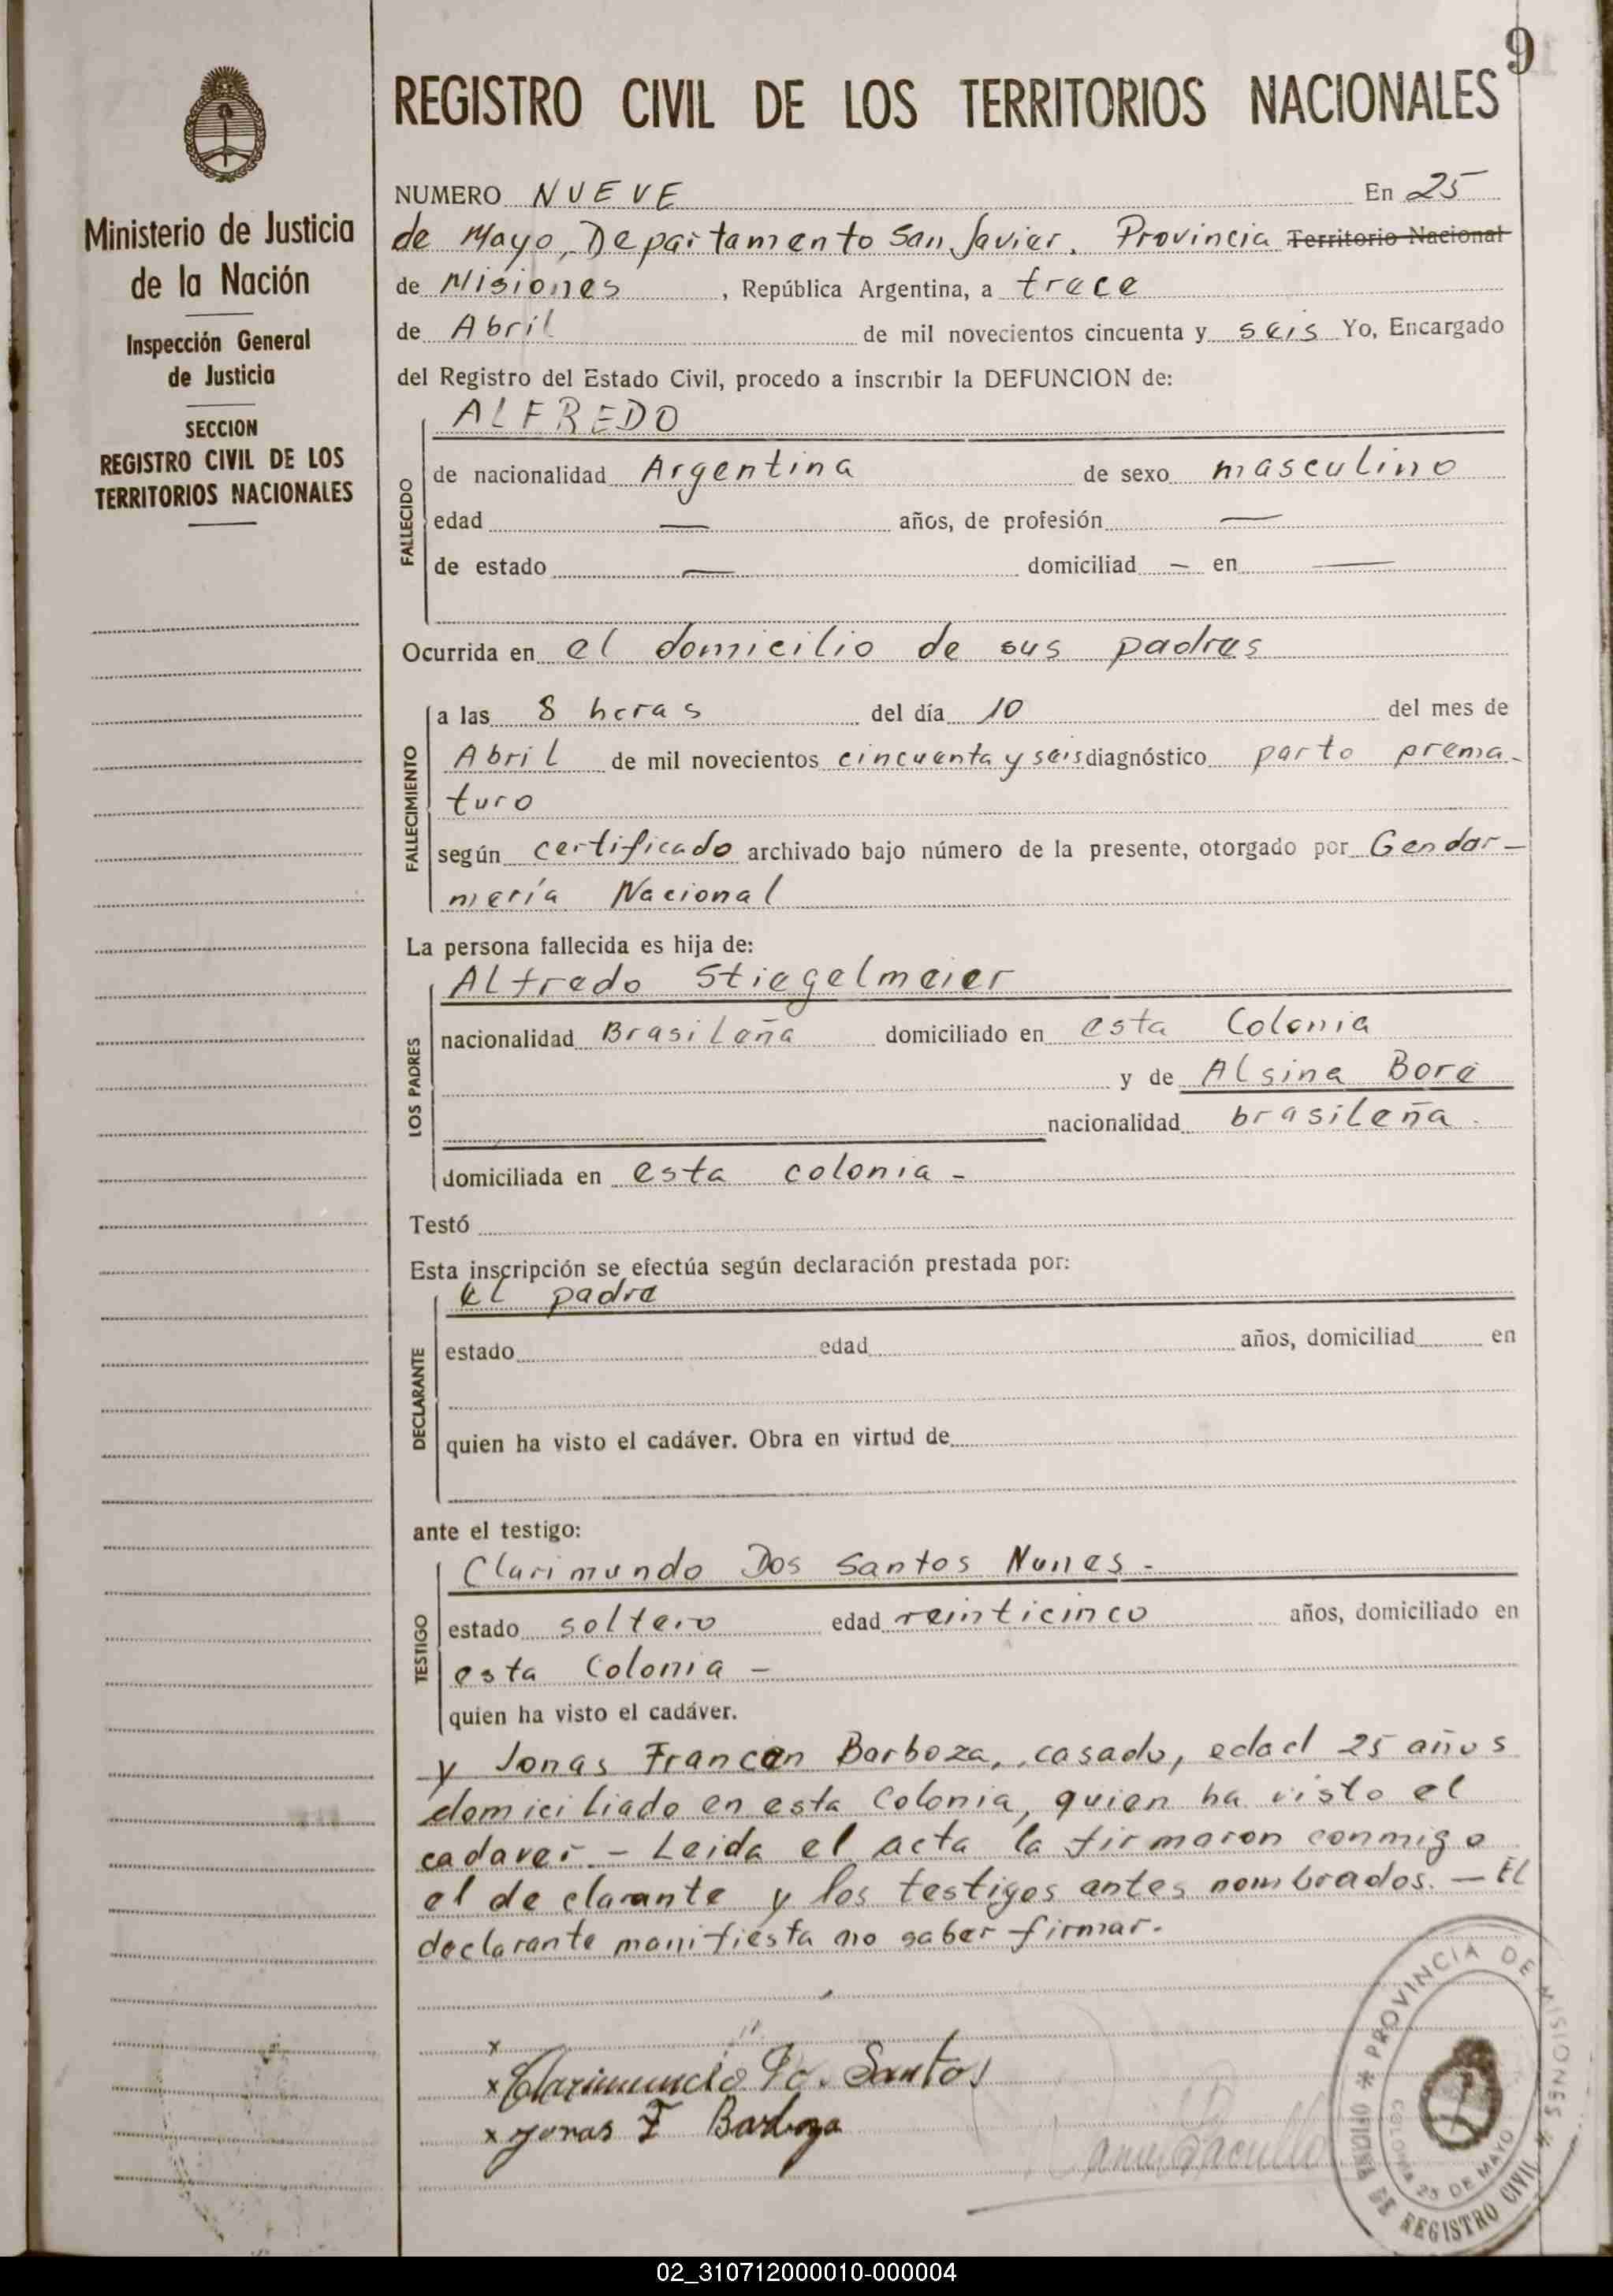 9
REGISTRO CIVIL DE LOS TERRITORIOS NACIONALES
Ministerio de Justicia
de la Nación
Inspección General
de Justicia
SECCION
REGISTRO CIVIL DE LOS
TERRITORIOS NACIONALES
NUMERO NUEVE En 25
de Mayo, Departamento San Javier. Provincia Territorio Nacional
de Misiones, República Argentina, a trece
de Abril de mil novecientos cincuenta y seis Yo, Encargado
del Registro del Estado Civil, procedo a inscribir la DEFUNCION de:
ALFREDO
FALLECIDO
de nacionalidad Argentina de sexo masculino
edad — años, de profesión —
de estado — domiciliad — en —
Ocurrida en el domicilio de sus padres
FALLECIMIENTO
a las 8 horas del día 10 del mes de
Abril de mil novecientos cincuenta y seis diagnóstico parto prema-
turo
según certificado archivado bajo número de la presente, otorgado por Gendar-
mería Nacional
La persona fallecida es hija de:
LOS PADRES
Alfredo Stiegelmeier
nacionalidad Brasileña domiciliado en esta Colonia
y de Alsina Bore
nacionalidad brasileña.
domiciliada en esta colonia -
Testó
Esta inscripción se efectúa según declaración prestada por:
DECLARANTE
el padre
estado edad años, domiciliad en
quien ha visto el cadáver. Obra en virtud de
ante el testigo:
TESTIGO
Clarimundo Dos Santos Nunes -
estado soltero edad veinticinco años, domiciliado en
esta Colonia -
quien ha visto el cadáver.
y Jonas Francon Barboza, casado, edad 25 años
domiciliado en esta Colonia, quien ha visto el
cadaver. - Leida el acta la firmaron conmigo
el declarante y los testigos antes nombrados. — El
declarante manifiesta no saber firmar.
x
x Clarimundo Do. Santos
x Jonas F Barboza
* PROVINCIA DE MISIONES *
OFICINA DE REGISTRO CIVIL
COLONIA 25 DE MAYO
02_310712000010-000004